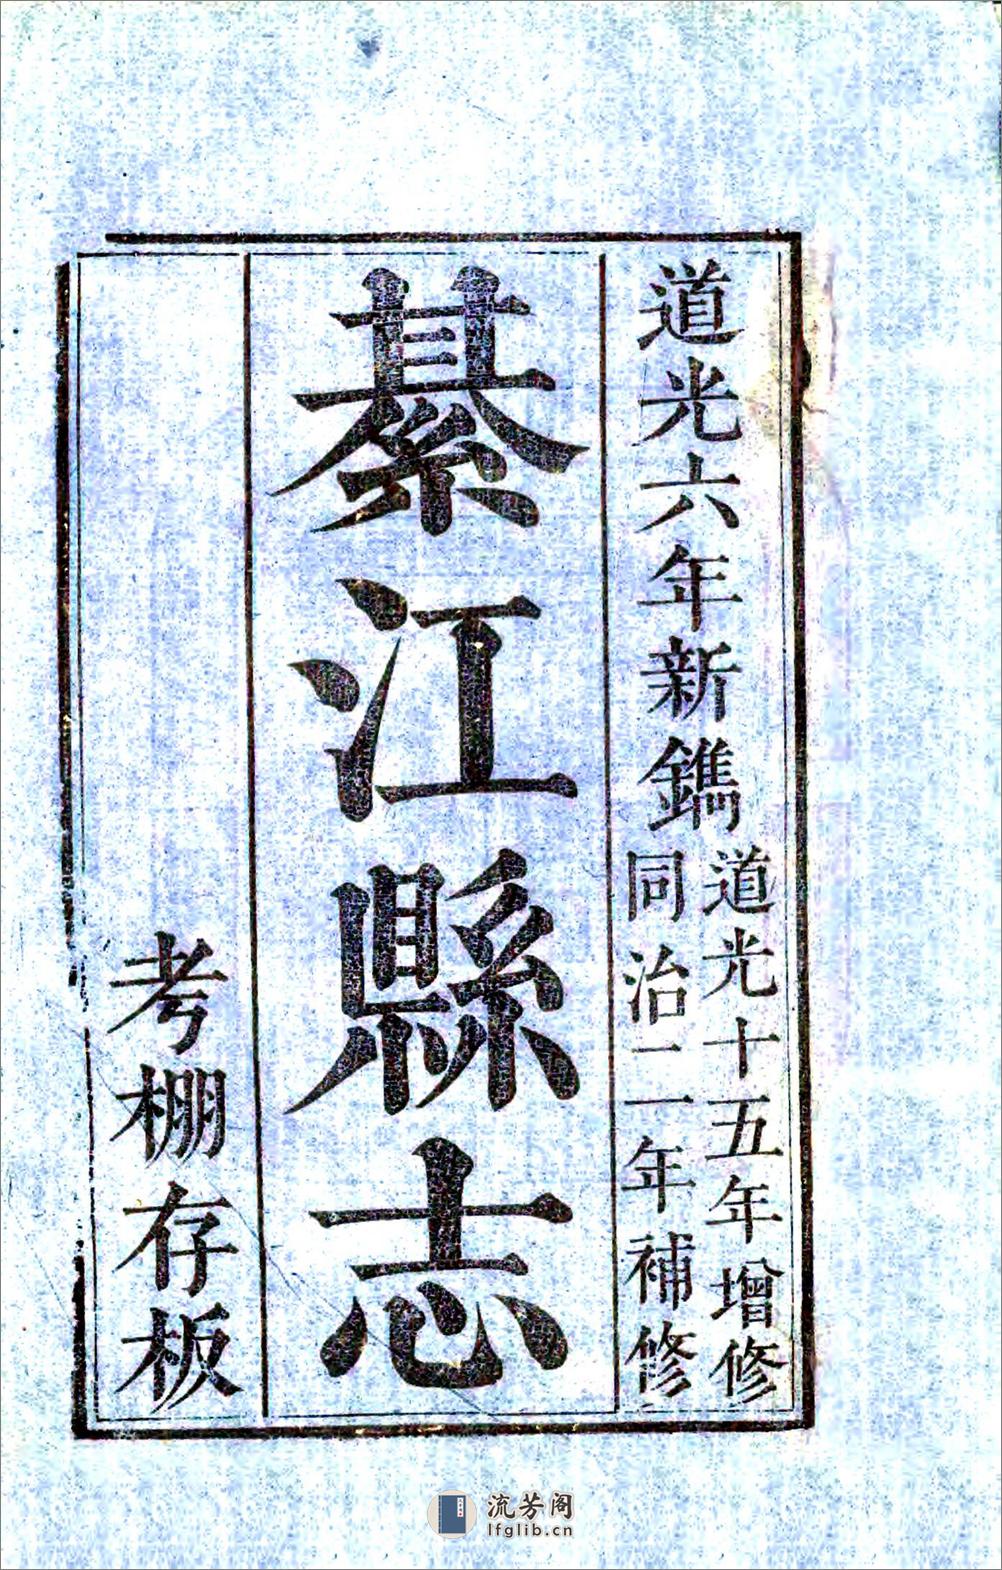 道光六年新鐫
道光十五年增修
同治二年補修
綦江縣志
考棚存板
流芳阁
lfglib.cn